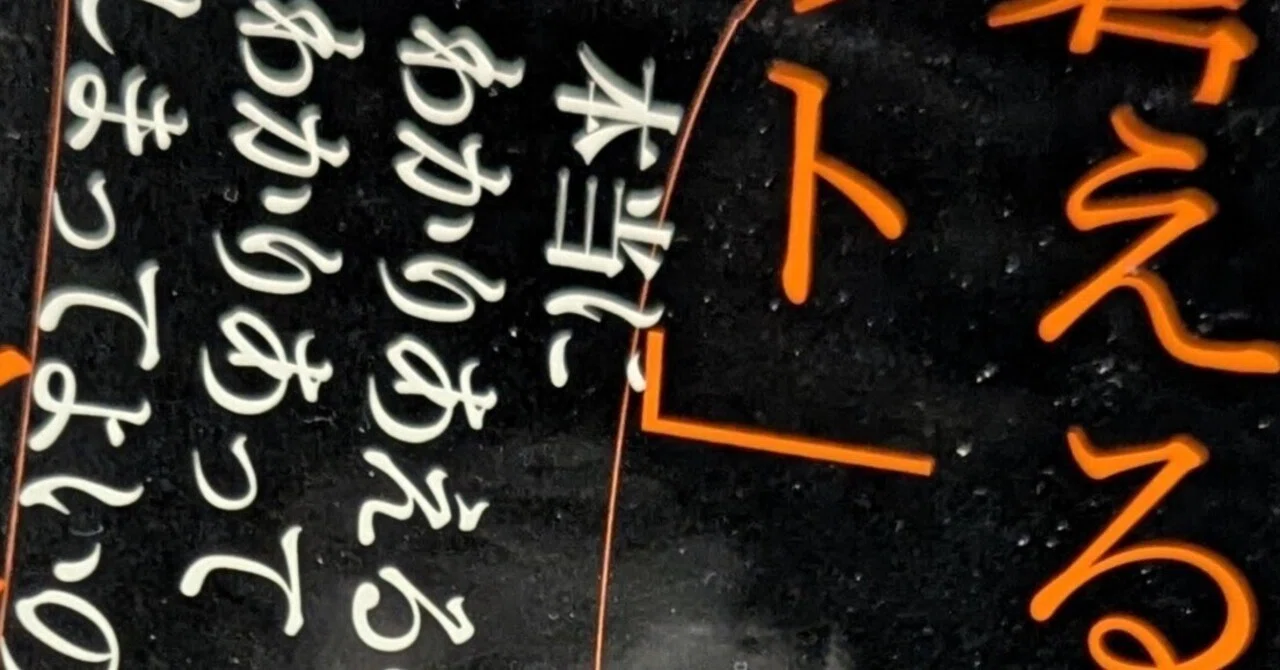 える
ト」
本当に
わかりあえる
わかりあって
まってよいの